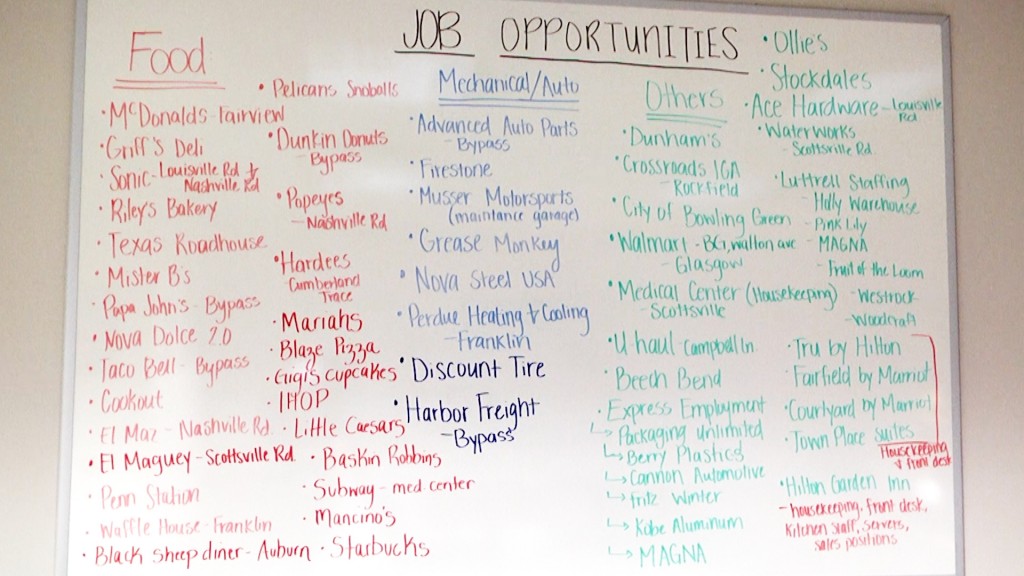 JOB OPPORTUNITIES
Food
• McDonalds - Fairview
• Griff's Deli
• Sonic - Louisville Rd &
Nashville Rd
• Riley's Bakery
• Texas Roadhouse
• Mister B's
• Papa John's - Bypass
• Nova Dolce 2.0
• Taco Bell - Bypass
• Cookout
• El Maz - Nashville Rd.
• El Maguey - Scottsville Rd
• Penn Station
• Waffle House - Franklin
• Black sheep diner - Auburn
• Pelicans Snoballs
• Dunkin Donuts
- Bypass
• Popeyes
- Nashville Rd
• Hardees
- Cumberland
Trace
• Mariahs
• Blaze Pizza
• Gigis cupcakes
• IHOP
• Little Caesars
• Baskin Robbins
• Subway - med center
• Mancino's
• Starbucks
Mechanical/Auto
• Advanced Auto Parts
- Bypass
• Firestone
• Musser Motorsports
(maintance garage)
• Grease Monkey
• Nova Steel USA
• Perdue Heating & Cooling
- Franklin
• Discount Tire
• Harbor Freight
- Bypass
Others
• Dunham's
• Crossroads IGA
- Rockfield
• City of Bowling Green
• Walmart - BG, wallon ave
- Glasgow
• Medical Center (Housekeeping)
- Scottsville
• U-haul - Campbell ln.
• Beech Bend
• Express Employment
↳ Packaging unlimited
↳ Berry Plastics
↳ Cannon Automotive
↳ Fritz Winter
↳ Kobe Aluminum
↳ MAGNA
• Ollie's
• Stockdales
• Ace Hardware - Louisville
Rd
• Water Works
- Scottsville Rd.
• Luttrell Staffing
- Holly Warehouse
- Pink Lily
- MAGNA
- Fruit of the Loom
- Westrock
- Woodcraft
• Tru by Hilton
• Fairfield by Marriot
• Courtyard by Marriot
• Town Place suites
Housekeeping
& front desk
• Hilton Garden Inn
- housekeeping, front desk,
kitchen staff, servers,
sales positions